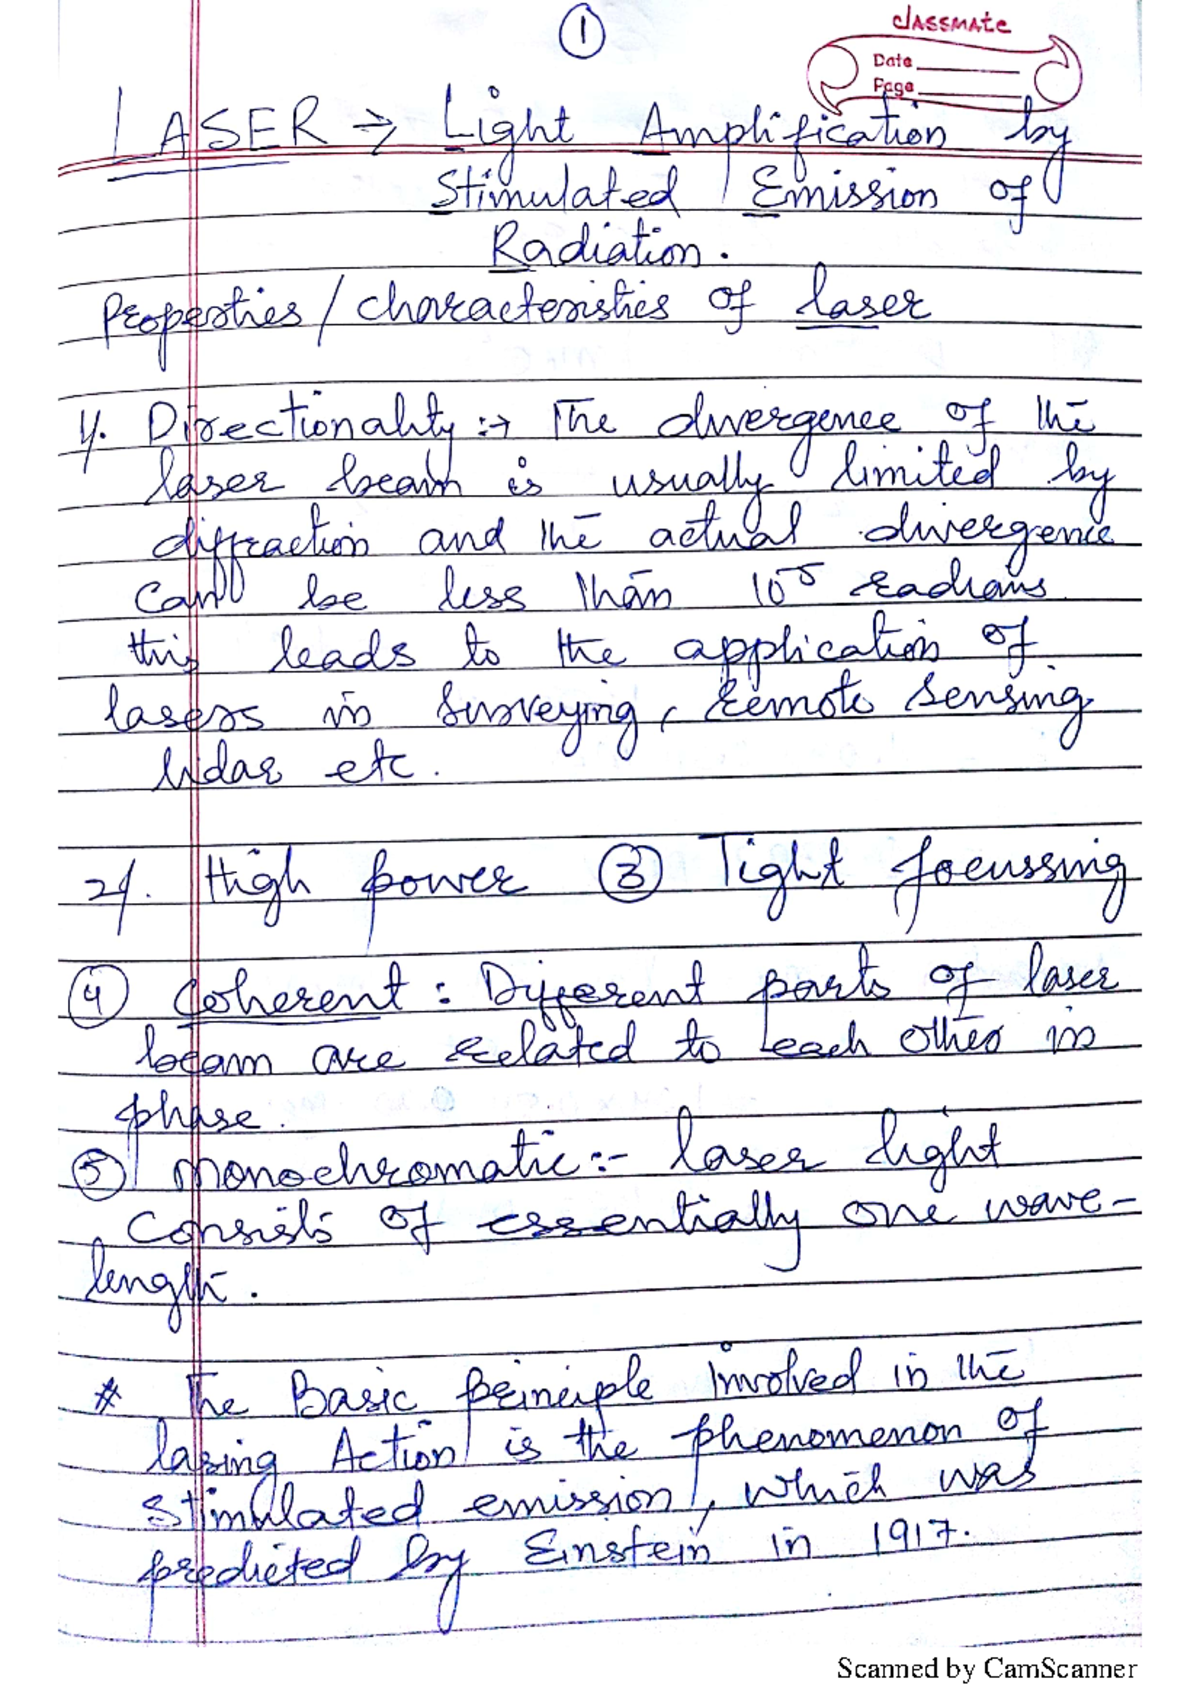 1
classmate
Date
Page
LASER → Light Amplification by
Stimulated Emission of
Radiation.
Properties / characteristics of laser
1. Directionality :→ The divergence of the
laser beam is usually limited by
diffraction and the actual divergence
can be less than 10⁻⁵ radians
this leads to the application of
lasers in surveying, remote sensing
lidar etc.
2. High power ③ Tight focussing
④ Coherent : Different parts of laser
beam are related to each other in
phase.
⑤ Monochromatic :- laser light
consists of essentially one wave-
length.
# The Basic principle involved in the
lasing Action is the phenomenon of
stimulated emission, which was
predicted by Einstein in 1917.
Scanned by CamScanner